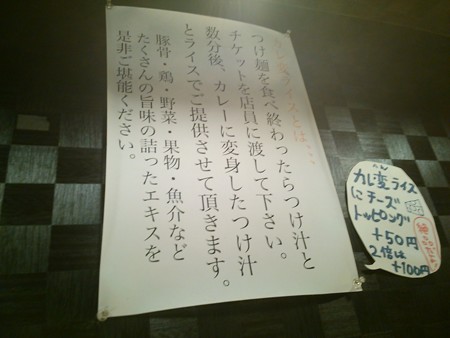 カレ変ライスとは・・・
つけ麺を食べ終わったらつけ汁と
チケットを店員に渡して下さい。
数分後、カレーに変身したつけ汁
とライスでご提供させて頂きます。
豚骨・鶏・野菜・果物・魚介など
たくさんの旨味の詰ったエキスを
是非ご堪能ください。
カレ変ライス
にチーズ
トッピング
+50円
2倍は
+100円